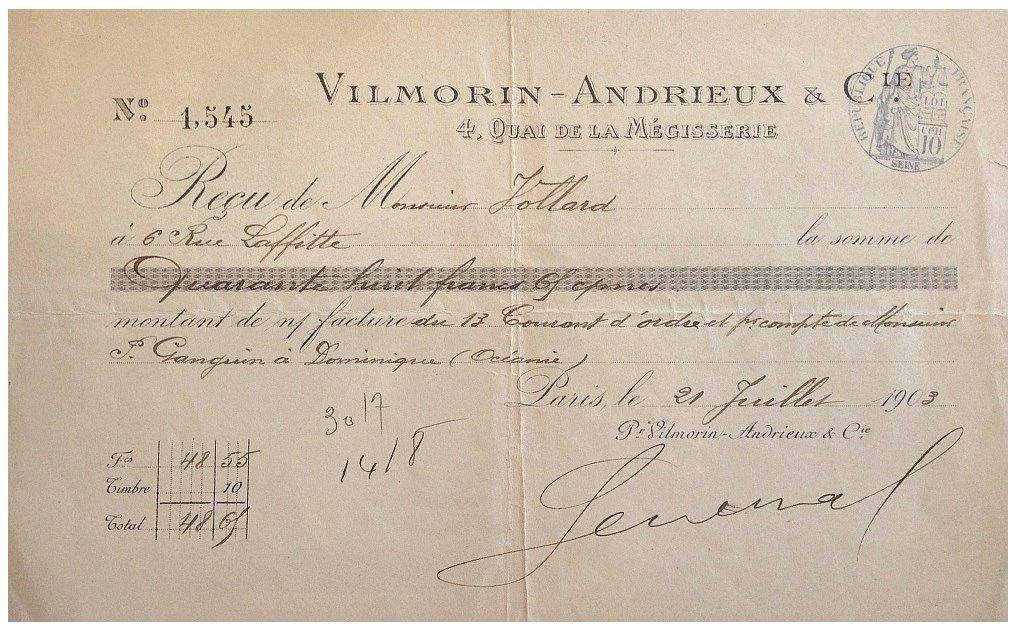 VILMORIN-ANDRIEUX & CIE.
No. 1,545
4, QUAI DE LA MÉGISSERIE
RÉPUBLIQUE FRANÇAISE
10
SEINE
Reçu de Monsieur Vollard
à 6 Rue Laffitte la somme de
Quarante huit francs 65 cmes.
montant de n/ facture du 13 Courant d'ordre et pr compte de Monsieur
P. Gauguin à Dominique (Océanie)
Paris, le 21 Juillet 1903
Pr Vilmorin-Andrieux & Cie
30/7
14/8
Fcs 48 55
Timbre 10
Total 48 65